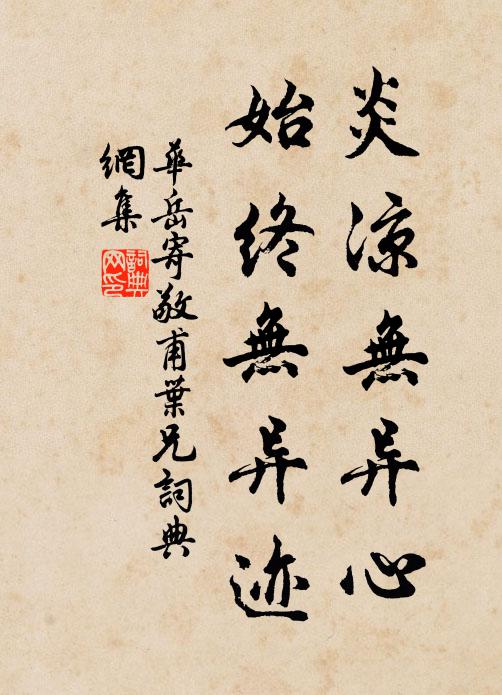 炎凉無异心
始終無异迹
華岳寄敬甫葉兄詞典
網集
詞典
网印